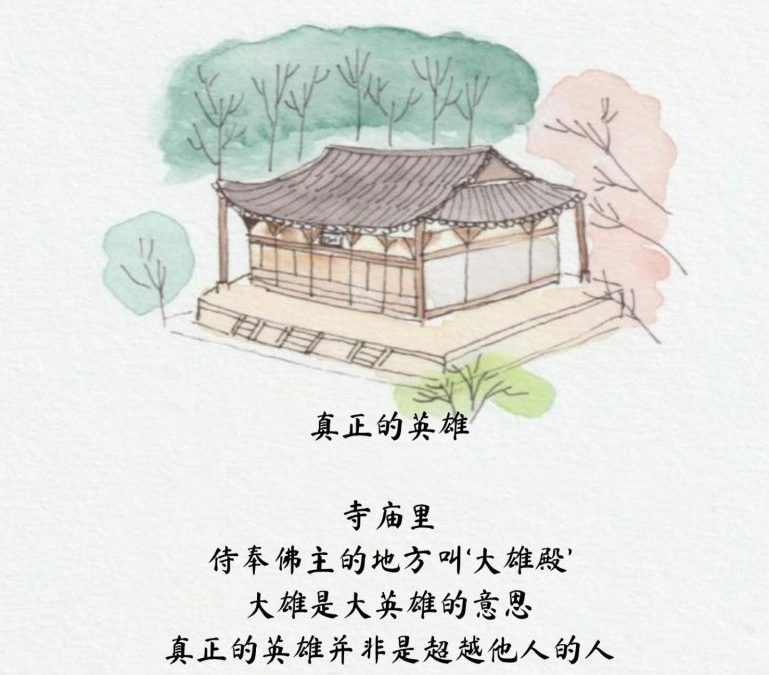 真正的英雄
寺庙里
侍奉佛主的地方叫‘大雄殿’
大雄是大英雄的意思
真正的英雄并非是超越他人的人